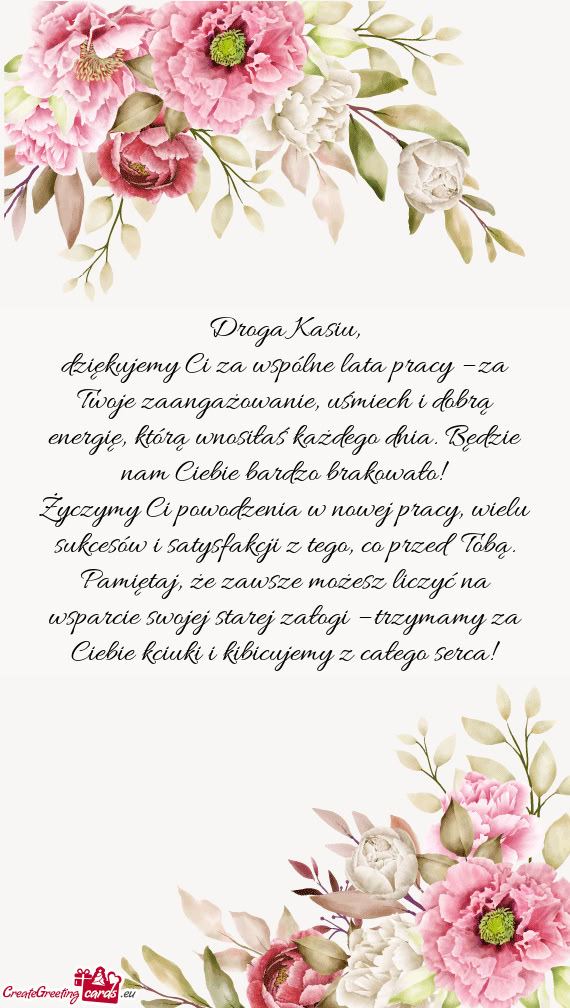 Droga Kasiu,
dziękujemy Ci za wspólne lata pracy – za
Twoje zaangażowanie, uśmiech i dobrą
energię, którą wnosiłaś każdego dnia. Będzie
nam Ciebie bardzo brakowało!
Życzymy Ci powodzenia w nowej pracy, wielu
sukcesów i satysfakcji z tego, co przed Tobą.
Pamiętaj, że zawsze możesz liczyć na
wsparcie swojej starej załogi – trzymamy za
Ciebie kciuki i kibicujemy z całego serca!
CreateGreeting cards .eu